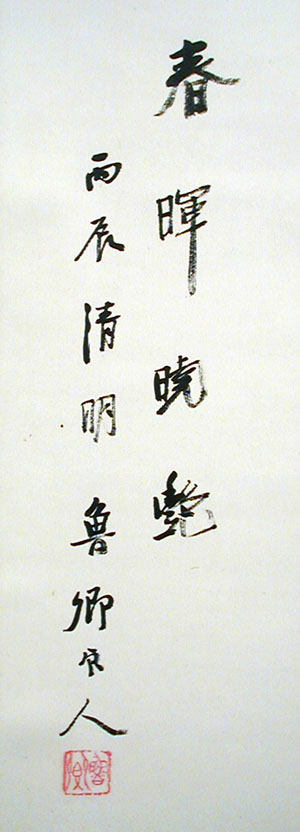 春暉曉艷
丙辰清明魯卿人